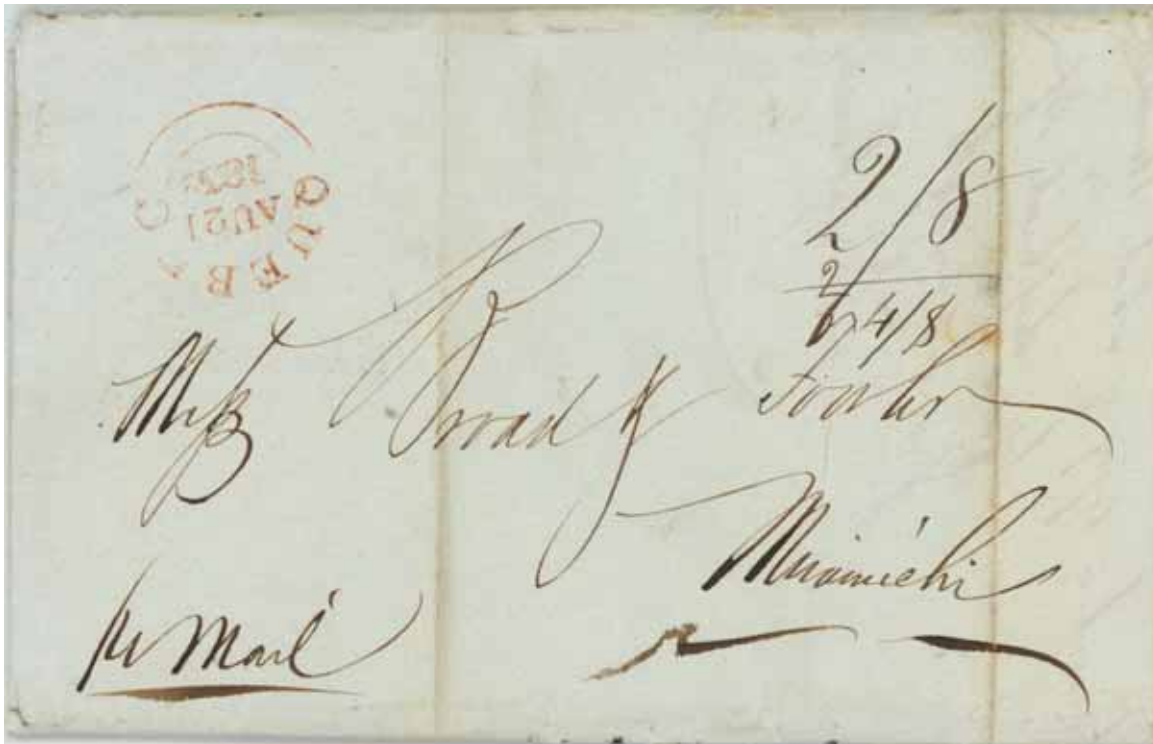 QUEBEC
AU 21
2/8
4/8
Messrs Broad &
Miramichi
per Mail